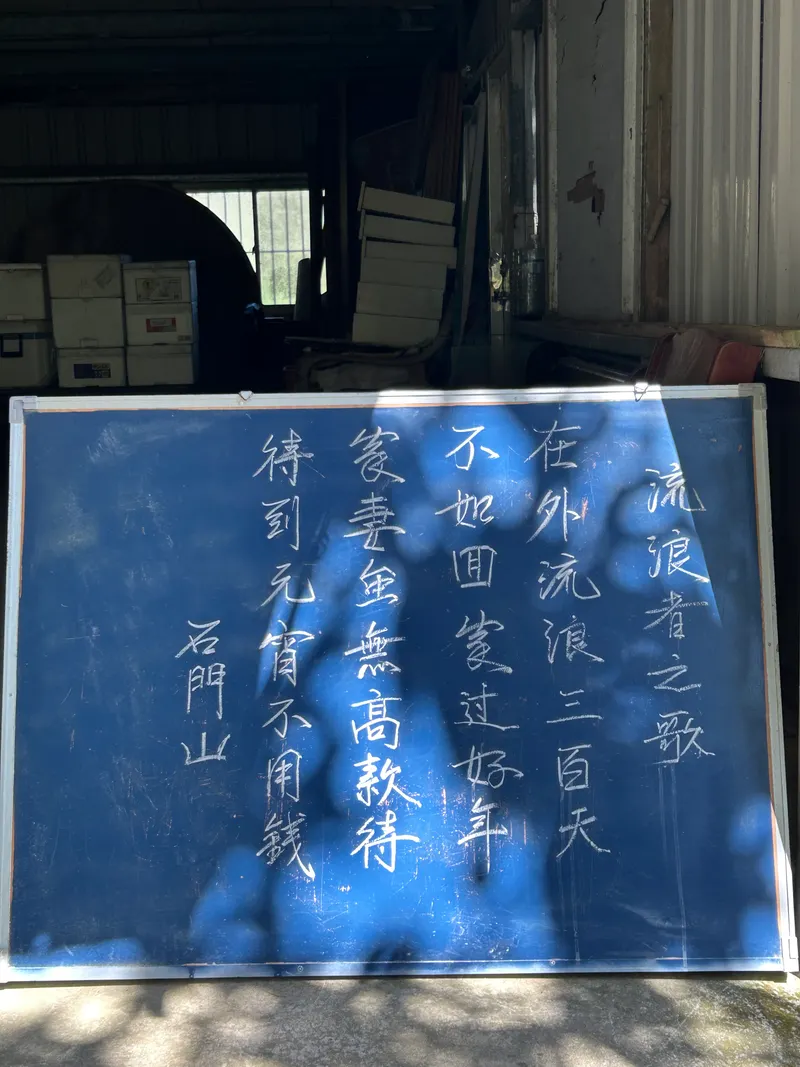 流浪者之歌
在外流浪三百天
不如囬家过好年
家妻虽無高款待
待到元宵不用錢
石門山